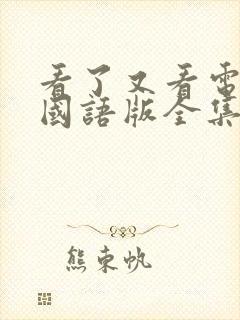 看了又看電
國語版全集
熊東帆